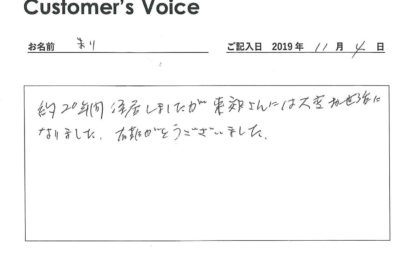 Customer's Voice
お名前
ご記入日 2019年 11 月 4 日
約20年間 住居しましたが 東 さんには大変お世話に
なりました。有難とうございました。